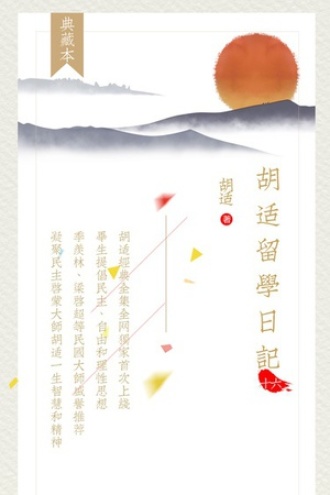 典藏本
胡适留學日記
十六
胡适
著
胡适經典全集全网獨家首次上綫
畢生提倡民主、自由和理性思想
季羨林、梁啓超等民國大師感譽推荐
凝聚民主啓蒙大師胡适一生智慧和精神